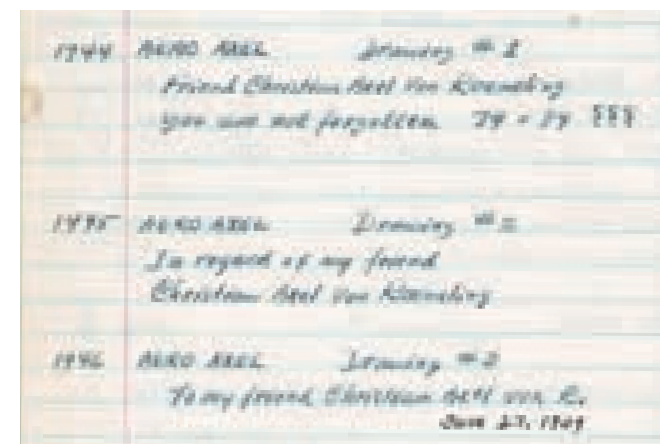 1944 AERO AXEL Drawing #
Friend Christian Axel Von Koenneling
you are not forgotten
AERO AXEL Drawing #
In regard of my friend
Christian Axel Von Koenneling
1946 AERO AXEL Drawing #
To my friend Christian Axel von K.
June 27, 1949